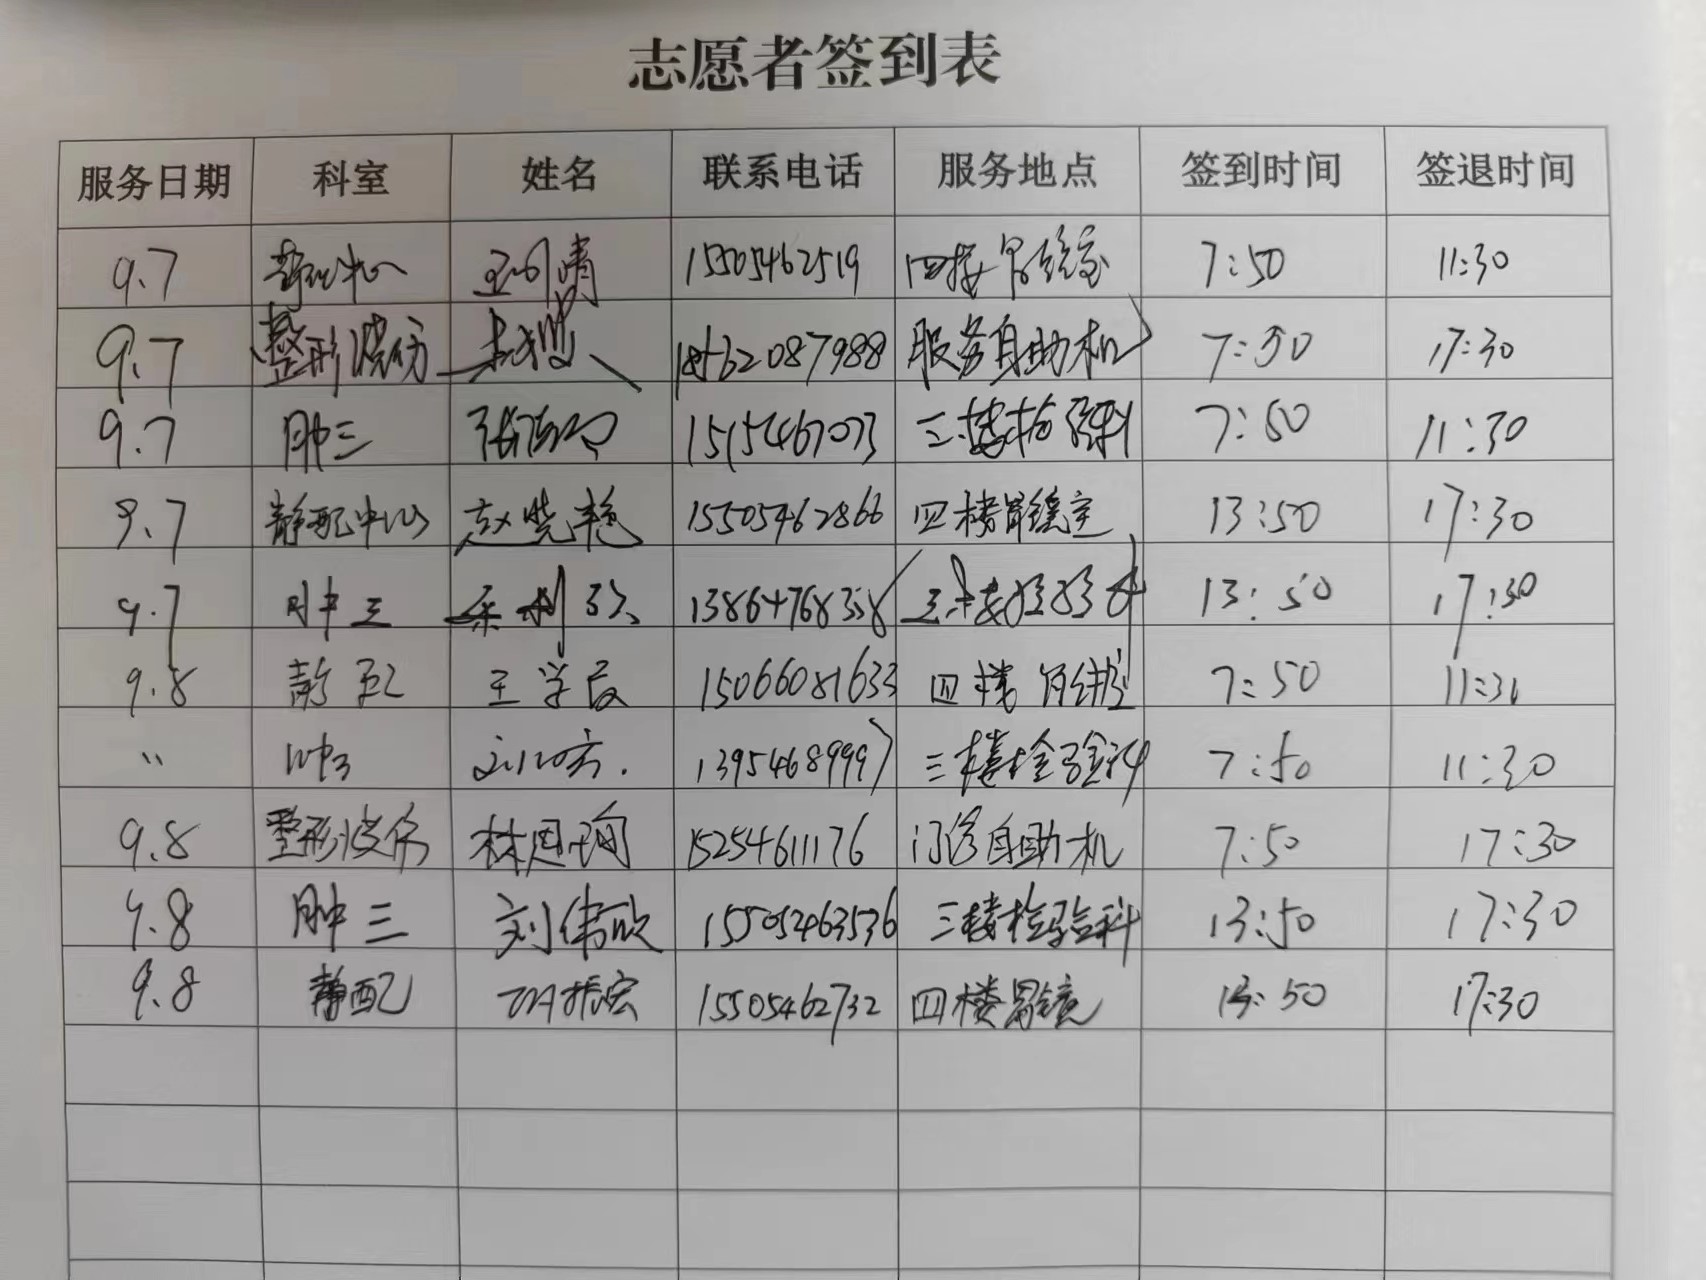 志愿者签到表
服务日期 科室 姓名 联系电话 服务地点 签到时间 签退时间
9.7 15505462519 四楼胃镜室 7:50 11:30
9.7 整形烧伤 18562087988 服务自助机 7:50 17:30
9.7 肿三 三楼检验科 7:50 11:30
9.7 静配中心 赵晓艳 15505462866 四楼胃镜室 13:50 17:30
9.7 肿三 三楼检验科 13:50 17:30
9.8 静配 王学良 15066081633 四楼胃镜室 7:50 11:30
" 肿3 13954689997 三楼检验科 7:50 11:30
9.8 整形烧伤 林思琦 15254611176 门诊自助机 7:50 17:30
9.8 肿三 刘伟欣 15505463536 三楼检验科 13:50 17:30
9.8 静配 振宏 15505462732 四楼胃镜 13:50 17:30